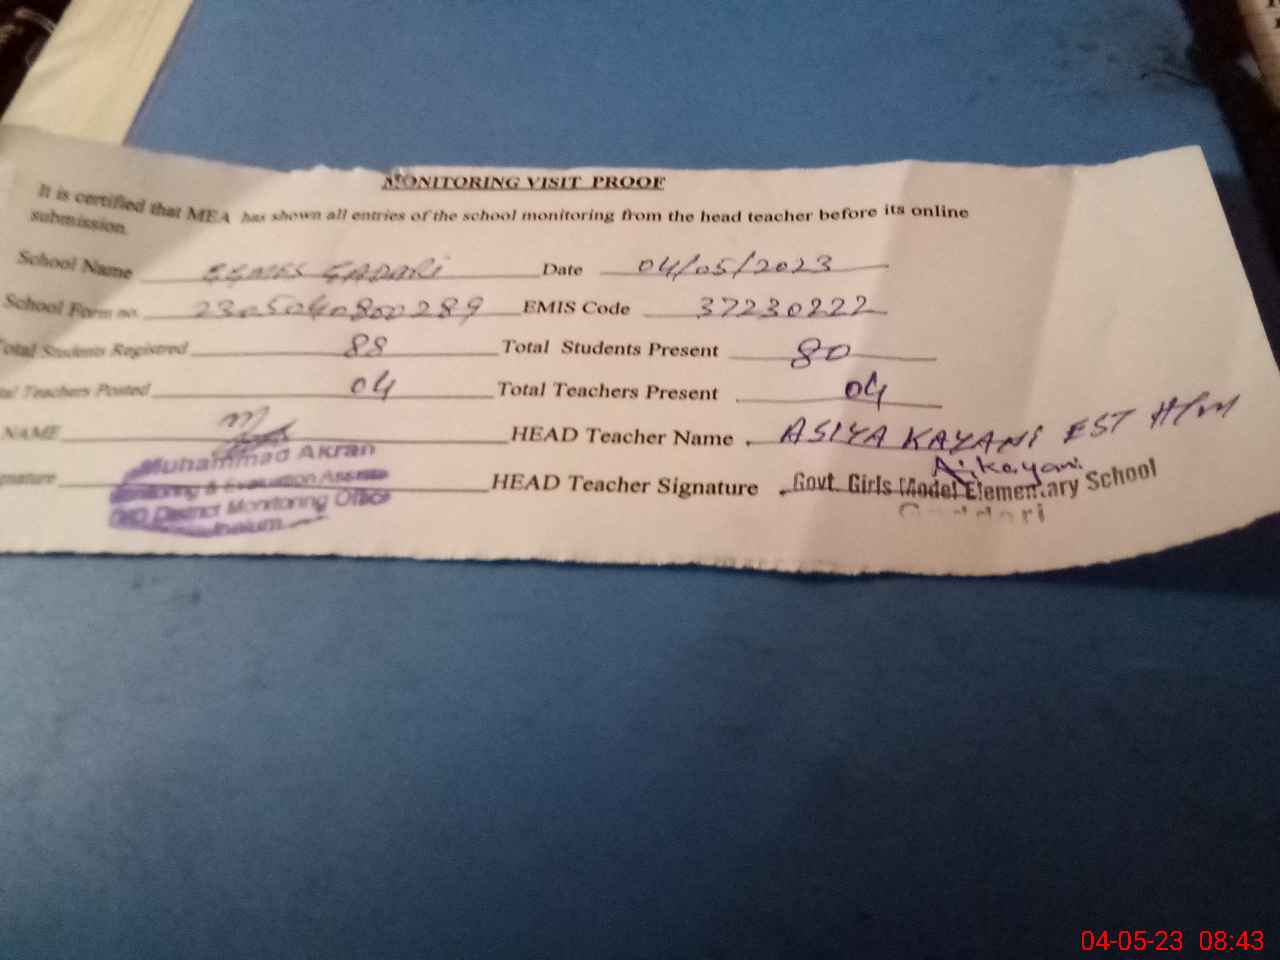 MONITORING VISIT PROOF
It is certified that MEA has shown all entries of the school monitoring from the head teacher before its online
submission.
School Name GGMES GADARI Date 04/05/2023
School Form no. 2305040800289 EMIS Code 37230222
otal Students Registred 88 Total Students Present 80
tal Teachers Posted 04 Total Teachers Present 04
NAME HEAD Teacher Name ASIYA KAYANI EST H/M
Muhammad Akran
nature HEAD Teacher Signature A.kayani
Monitoring & Evaluation Assista
District Monitoring Office
Jhelum
Govt. Girls Model Elementary School
Gaddari
04-05-23 08:43